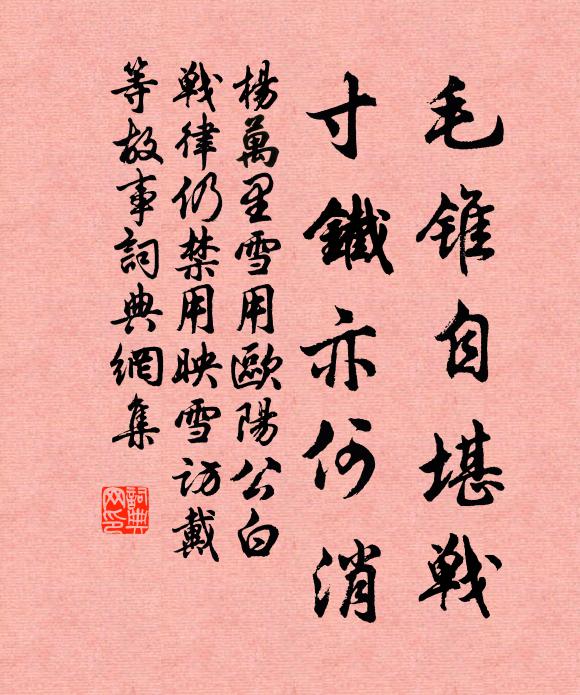 毛錐自堪戰
寸鐵亦何消
楊萬里雪用歐陽公白
戰律仍禁用映雪訪戴
等故事詞典網集
詞典
网印